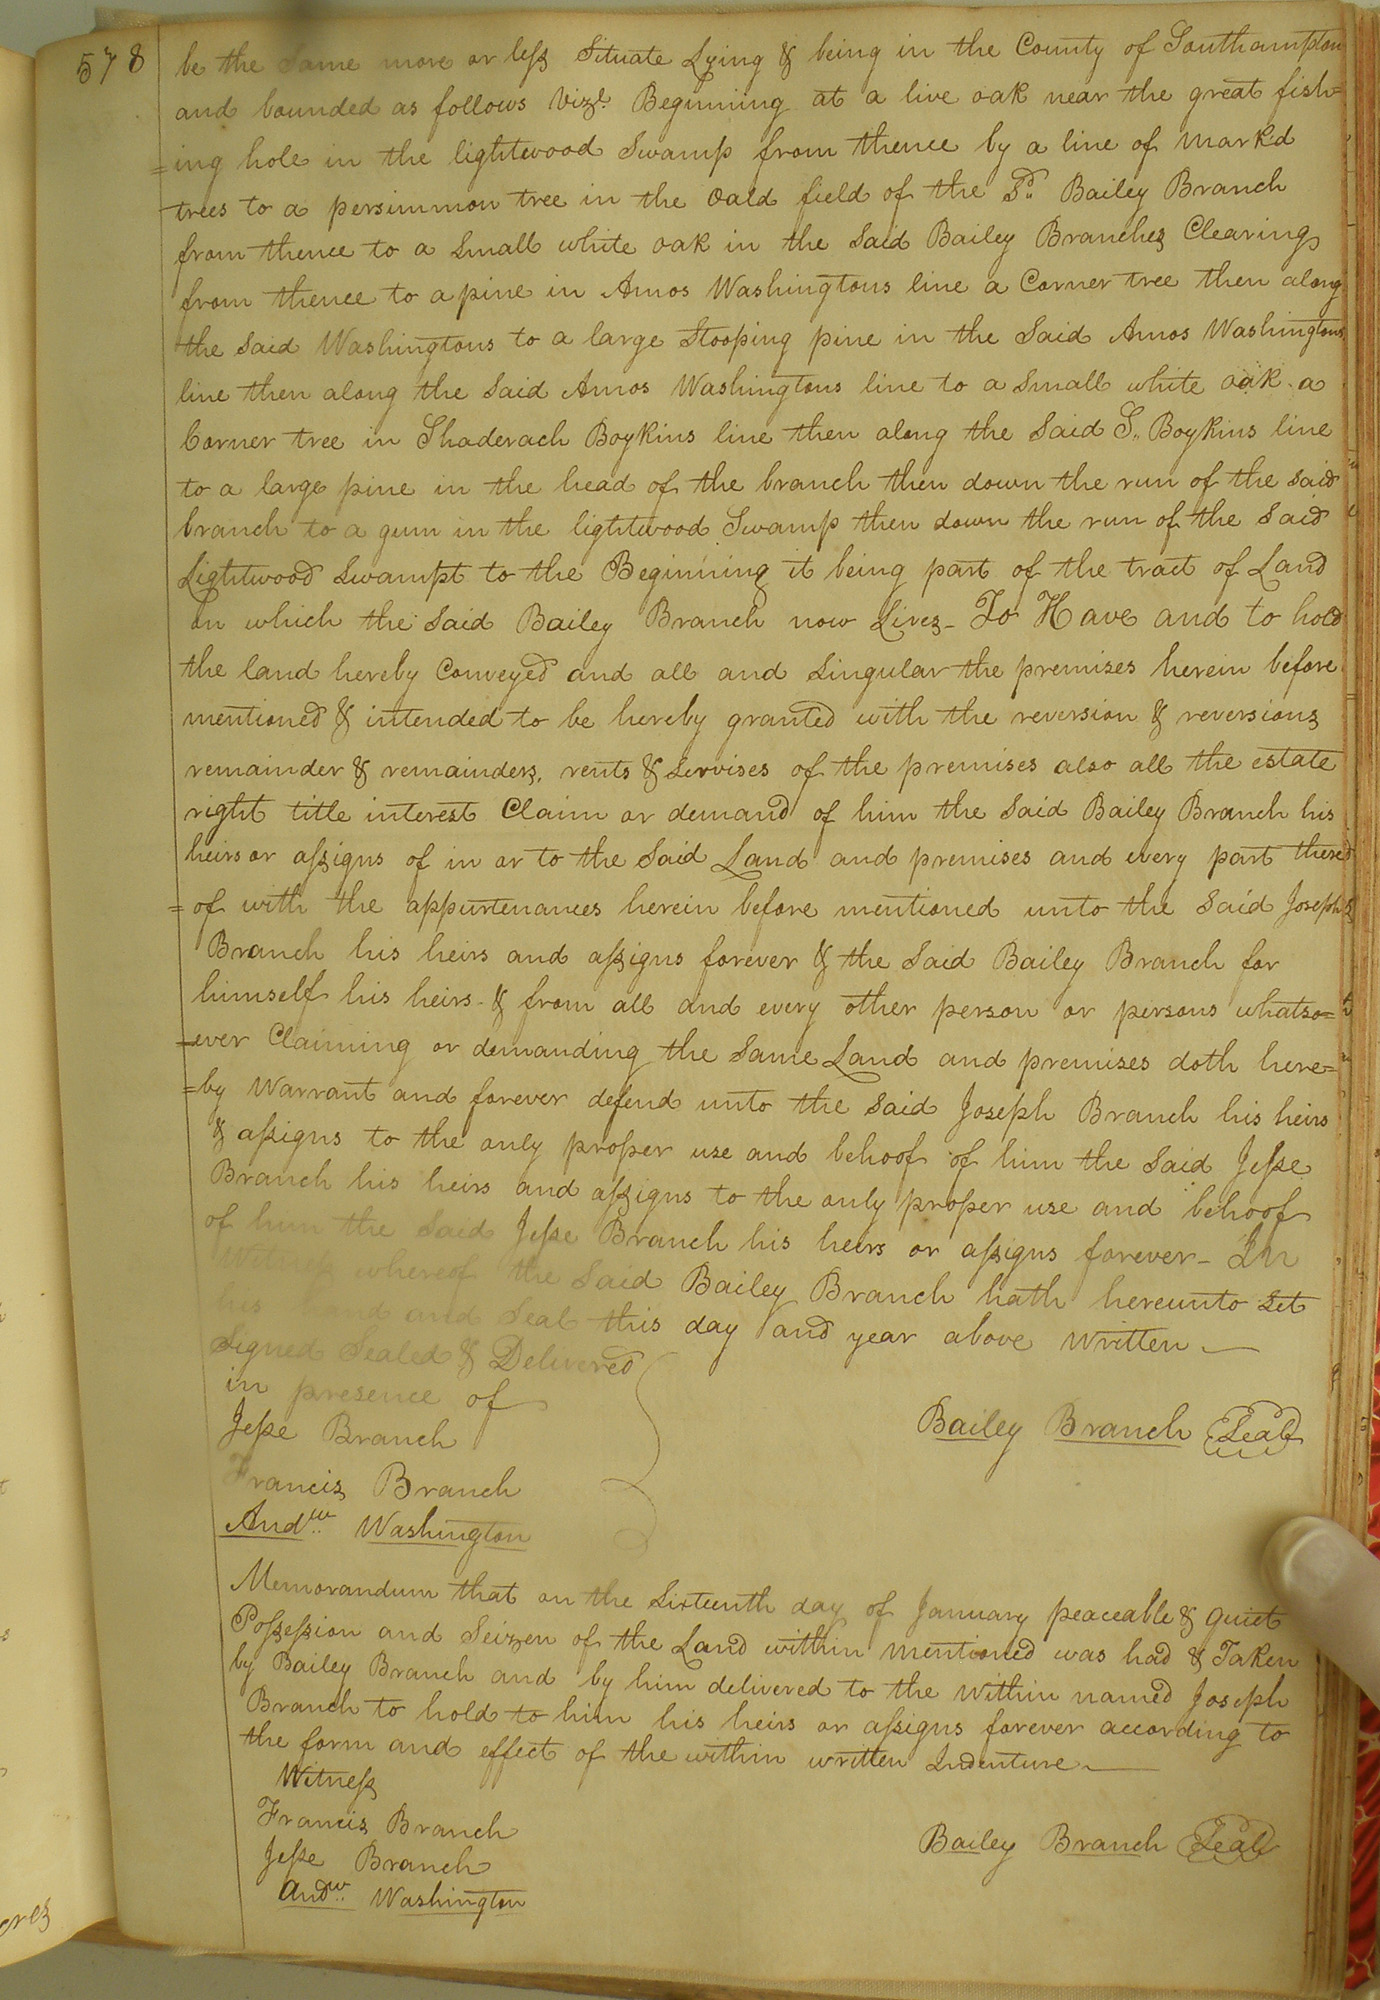 578
be the Same more or less Situate Lying & being in the County of Southampton
and bounded as follows Vizt. Beginning at a live oak near the great fish=
=ing hole in the lightwood Swamp from thence by a line of markd
trees to a persimmon tree in the oald field of the Sd. Bailey Branch
from thence to a Small white oak in the Said Bailey Branches Clearing
from thence to a pine in Amos Washingtons line a Corner tree then along
the Said Washingtons to a large Stooping pine in the Said Amos Washingtons
line then along the Said Amos Washingtons line to a Small white oak a
Corner tree in Shaderach Boykins line then along the Said S. Boykins line
to a large pine in the head of the branch then down the run of the said
branch to a gum in the lightwood Swamp then down the run of the Said
Lightwood Swampt to the Beginning it being part of the tract of Land
on which the Said Bailey Branch now Lives- To Have and to hold
the land hereby Conveyed and all and Singular the premises herein before
mentioned & intended to be hereby granted with the reversion & reversions
remainder & remainders, rents & Servises of the premises also all the estate
right title interest Claim or demand of him the Said Bailey Branch his
heirs or assigns of in or to the Said Land and premises and every part there
=of with the appurtenances herein before mentioned unto the Said Joseph
Branch his heirs and assigns forever & the Said Bailey Branch for
himself his heirs & from all and every other person or persons whatso=
=ever Claiming or demanding the Same Land and premises doth here=
=by Warrant and forever defend unto the Said Joseph Branch his heirs
& assigns to the only proper use and behoof of him the Said Jesse
Branch his heirs and assigns to the only proper use and behoof
of him the Said Jesse Branch his heirs or assigns forever- In
whereof the Said Bailey Branch hath hereunto Set
his and Seal this day and year above written
Signed Sealed & Delivered
in presence of
Jesse Branch
Bailey Branch Seal
Francis Branch
Andw. Washington
Memorandum that on the Sixteenth day of January peaceable & quiet
Possession and Seizen of the Land within mentioned was had & Taken
by Bailey Branch and by him delivered to the within named Joseph
Branch to hold to him his heirs or assigns forever according to
the form and effect of the within written Indenture
Witness
Francis Branch
Bailey Branch Seal
Jesse Branch
Andw. Washington